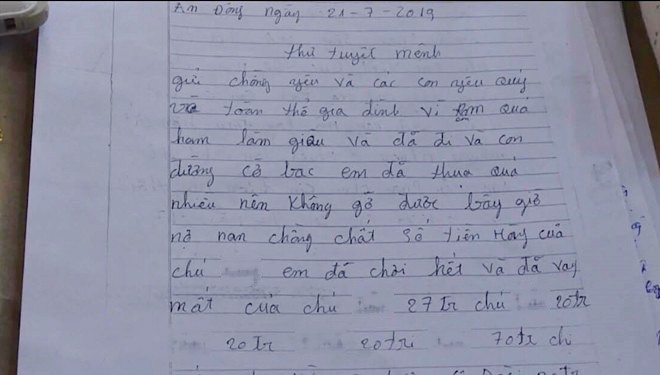 An Đồng ngày 21-7-2019
thư tuyệt mệnh
gửi chồng yêu và các con yêu quý
và toàn thể gia đình vì em quá
ham làm giàu và đã đi và con
đường cờ bạc em đã thua quá
nhiều nên không gỡ được bây giờ
nợ nan chồng chất số tiền Hãy của
chú em đã chơi hết và đã vay
mất của chú 27tr chú 20tr
20tr 20tr 70tr ch